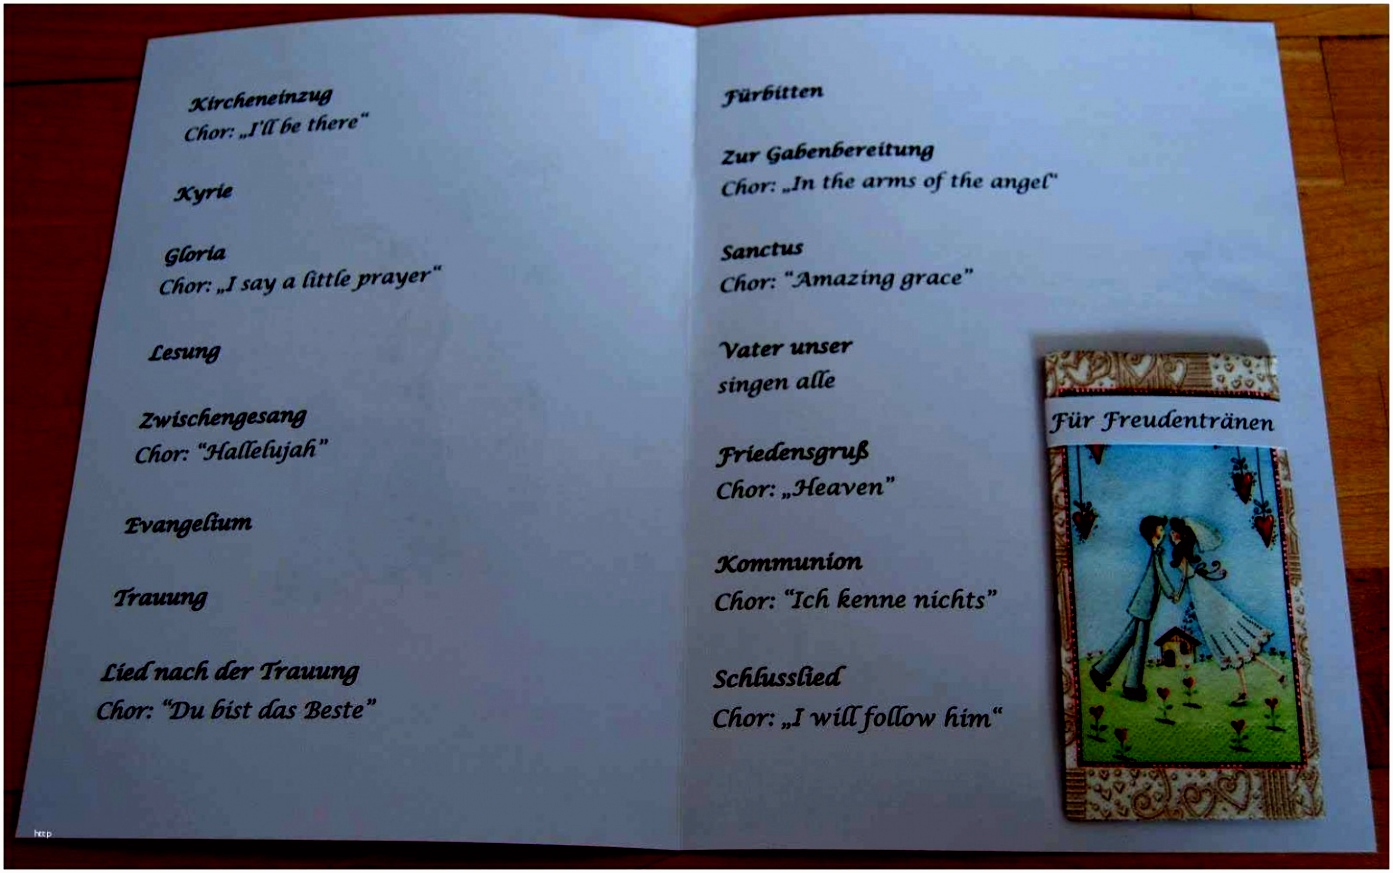 Kircheneinzug
Chor: „I'll be there“
Kyrie
Gloria
Chor: „I say a little prayer“
Lesung
Zwischengesang
Chor: “Hallelujah”
Evangelium
Trauung
Lied nach der Trauung
Chor: “Du bist das Beste”
Fürbitten
Zur Gabenbereitung
Chor: „In the arms of the angel“
Sanctus
Chor: “Amazing grace”
Vater unser
singen alle
Friedensgruß
Chor: „Heaven”
Kommunion
Chor: “Ich kenne nichts”
Schlusslied
Chor: „I will follow him“
Für Freudentränen
http